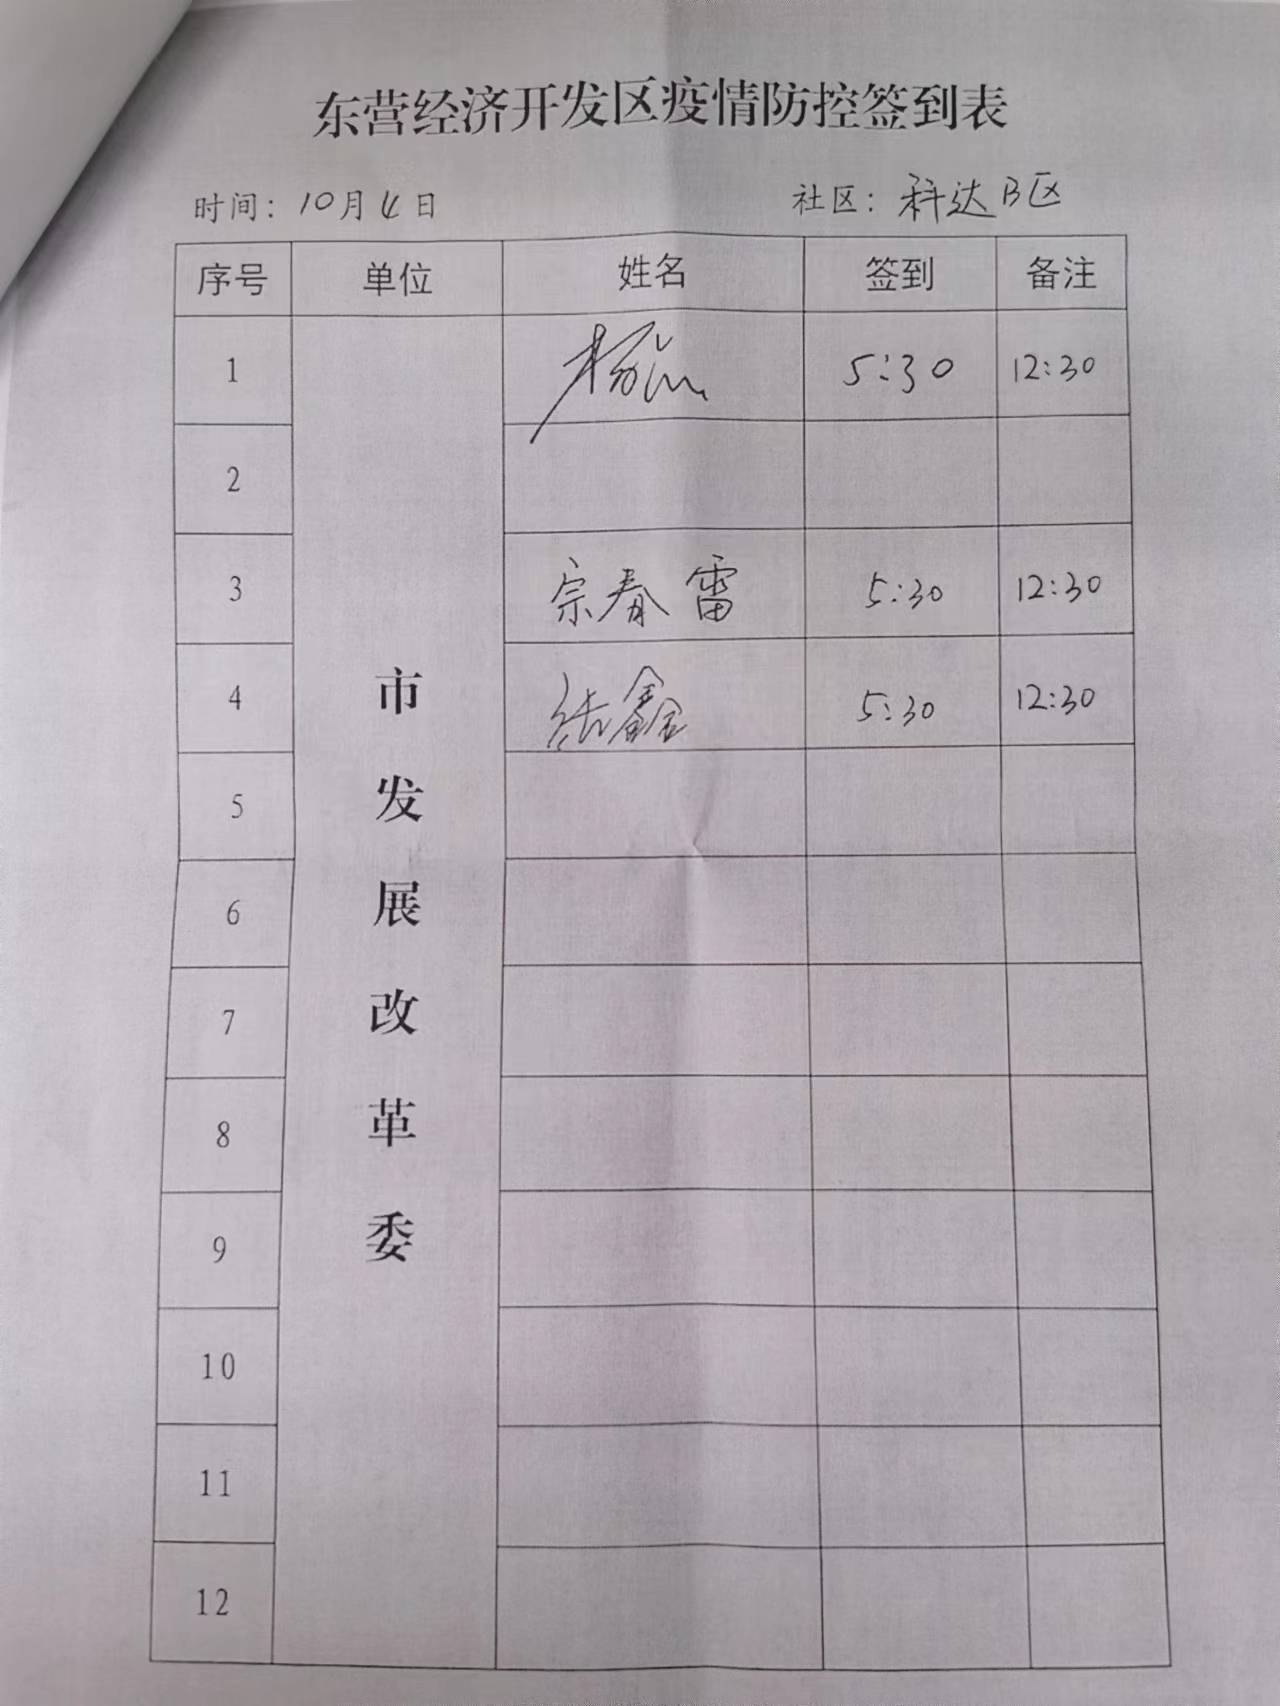 东营经济开发区疫情防控签到表
时间：10月4日 社区：科达B区
序号 单位 姓名 签到 备注
1 杨 5:30 12:30
2
3 宗春雷 5:30 12:30
4 鑫 5:30 12:30
5
6
7
8
9
10
11
12
市发展改革委